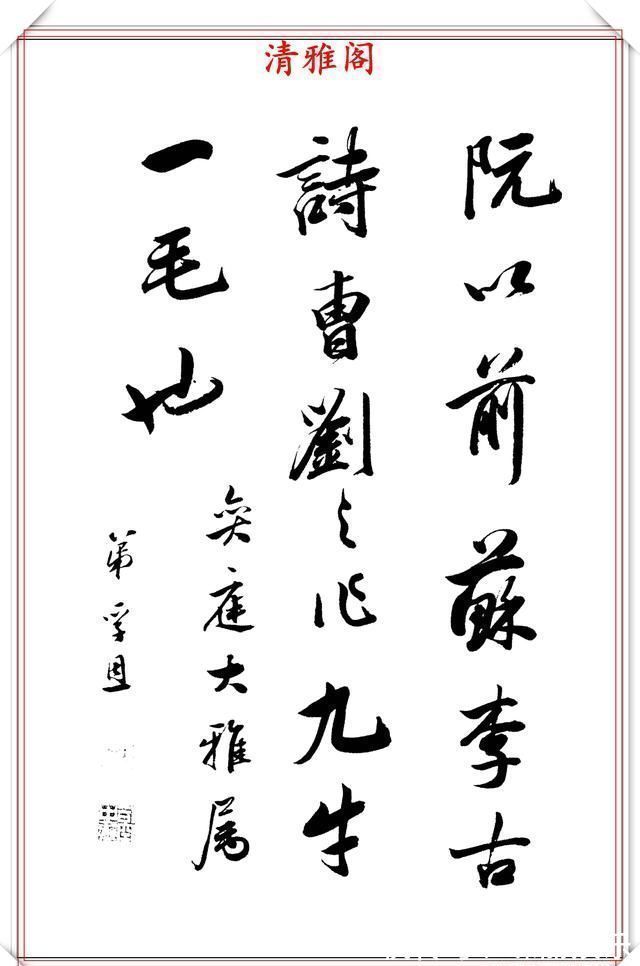 清雅阁
阮以前蘇李古
詩曹劉之作九牛
一毛也
奕庭大雅属
弟孚恩